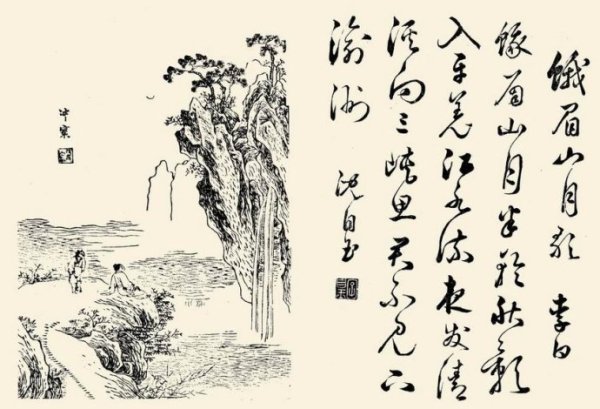 蛾眉山月歌 李白
蛾眉山月半輪秋影
入平羌江水流夜发清
溪向三峡思君不見下
渝洲 沈自玉
冲寰